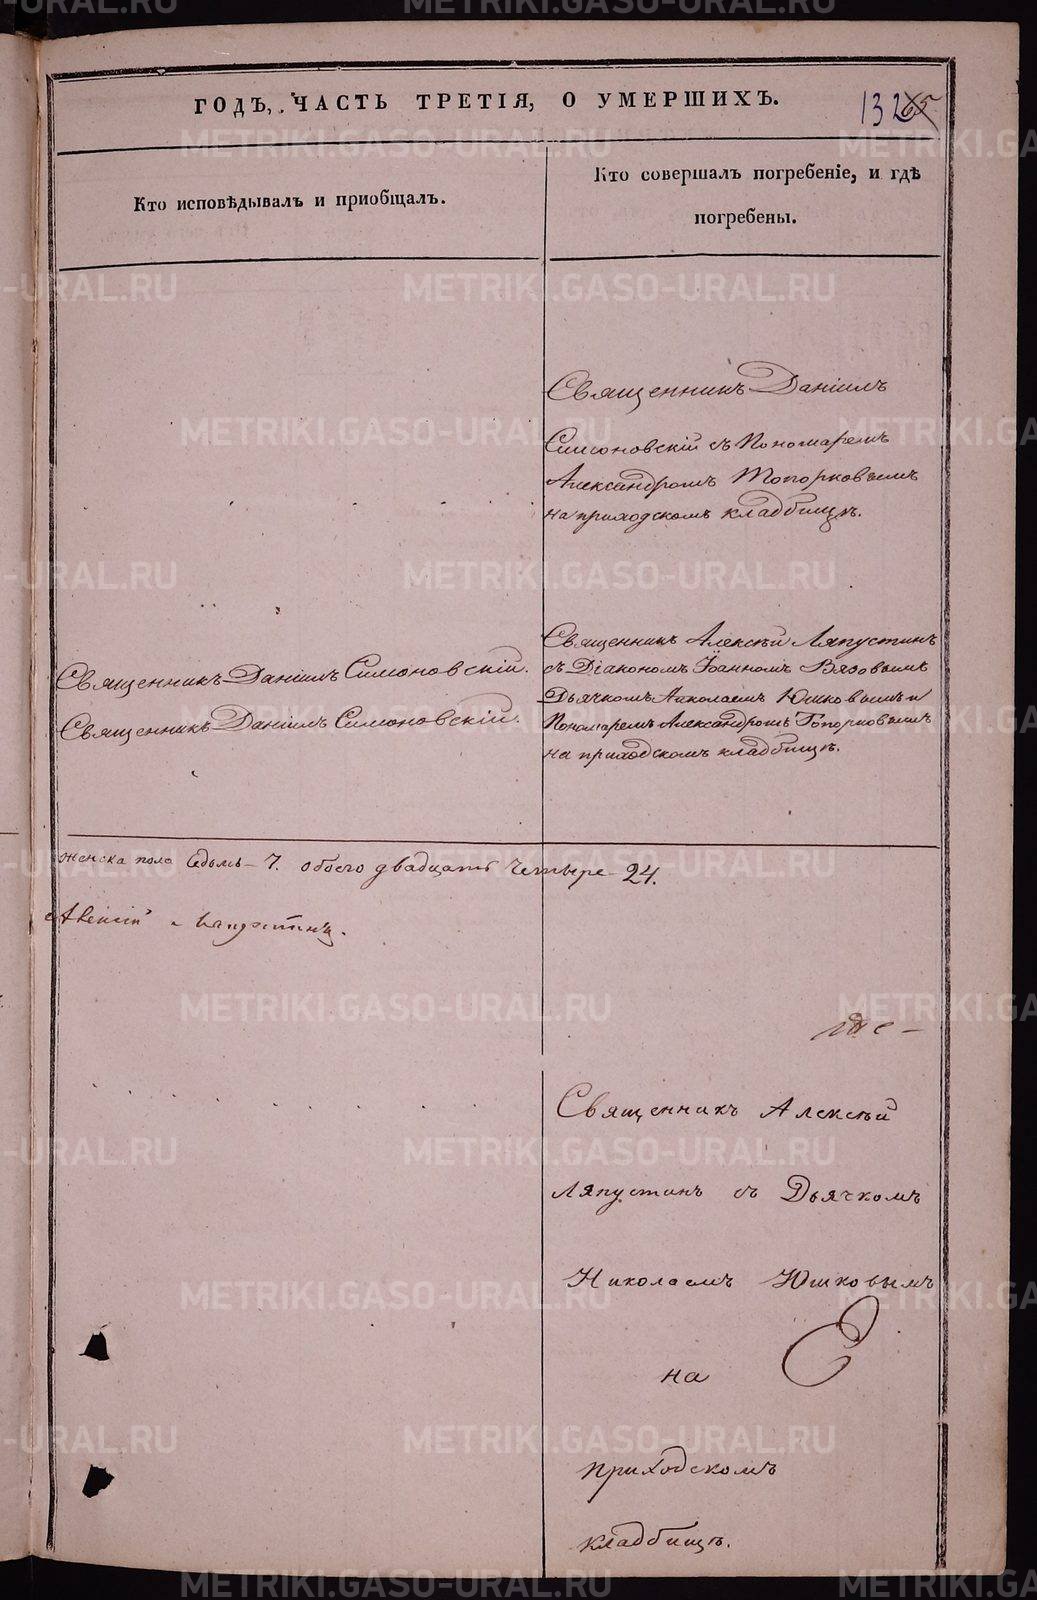 ГОДЪ, ЧАСТЬ ТРЕТІЯ, О УМЕРШИХЪ.
132 65
Кто исповѣдывалъ и приобщалъ.
Кто совершалъ погребеніе, и гдѣ
погребены.
Священникъ Даніилъ
Симоновскій съ Пономаремъ
Александромъ Топорковымъ
на приходскомъ кладбищѣ.
Священникъ Даніилъ Симоновскій.
Священникъ Даніилъ Симоновскій.
Священникъ Алексѣй Ляпустинъ
съ Діакономъ Іоанномъ Вязовымъ
Дьячкомъ Николаемъ Юшковымъ и
Пономаремъ Александромъ Топорковымъ
на приходскомъ кладбищѣ.
женска пола седмь - 7. обоего двадцать четыре - 24.
Алексій Ляпустинъ.
Священникъ Алексѣй
Ляпустинъ съ Дьячкомъ
Николаемъ Юшковымъ
на
приходскомъ
кладбищѣ.
METRIKI.GASO-URAL.RU